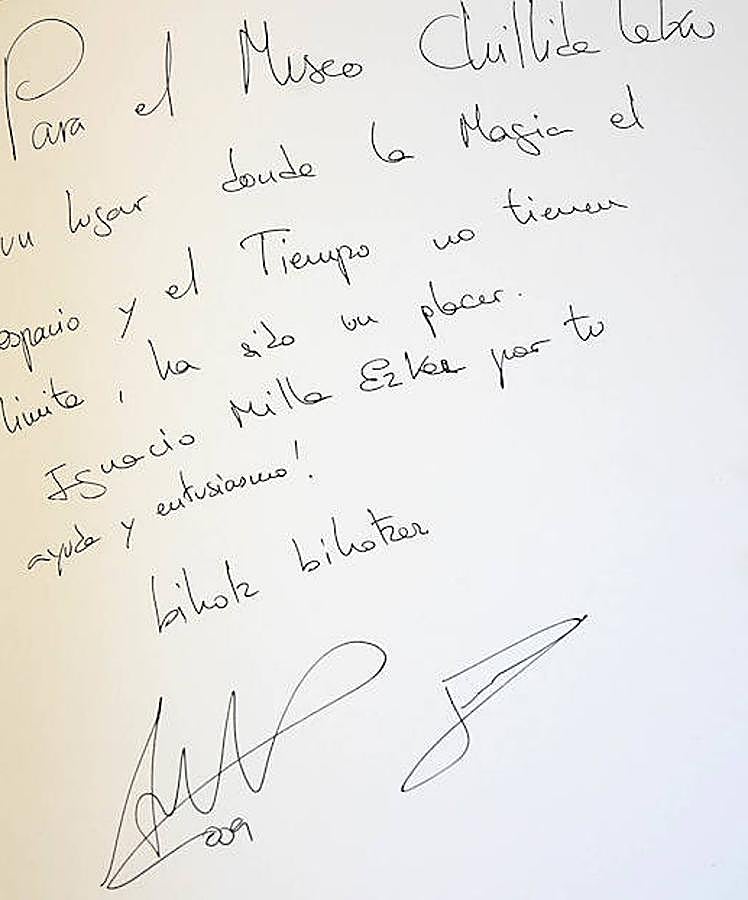 Para el Museo Chillida Leku
un lugar donde la Magia el
espacio y el Tiempo no tienen
limite, ha sido un placer.
Ignacio Milla Ezker por tu
ayuda y entusiasmo!.
bihotz bihotzez
2009